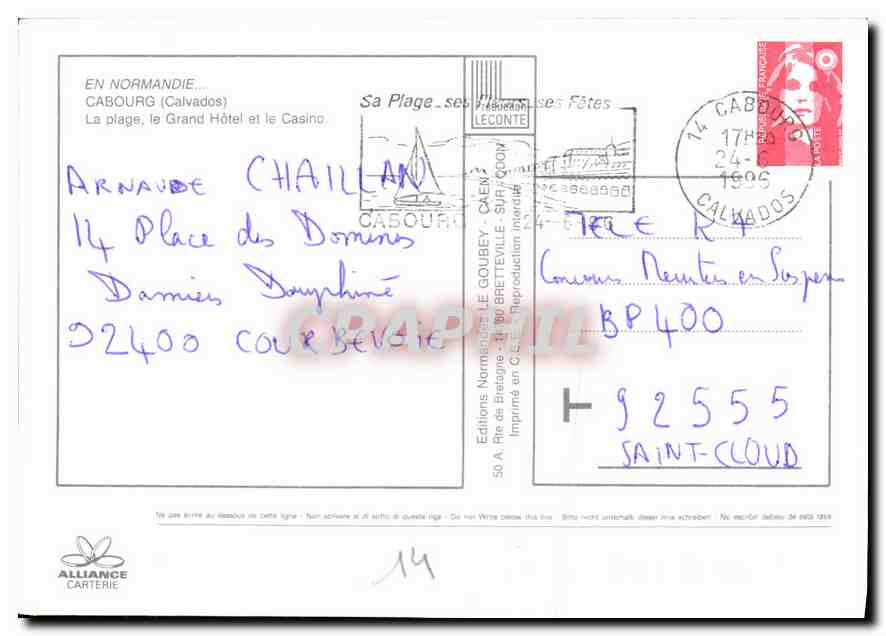 EN NORMANDIE...
CABOURG (Calvados)
La plage, le Grand Hôtel et le Casino.
Production
LECONTE
Sa Plage_ses Fleurs_ses Fêtes
CABOURG 24-6-1996
14 CABOURG
17H
24-6
1996
CALVADOS
RÉPUBLIQUE FRANÇAISE
LA POSTE
ARNAUDE CHAILLAN
14 Place des Dominos
Damiers Dauphiné
92400 COURBEVOIE
Editions Normandes LE GOUBEY - CAEN
50 A, Rte de Bretagne - 14760 BRETTEVILLE-SUR-ODON
Imprimé en C.E.E. - Reproduction interdite
TELE K 7
Concours Meurtres en Suspens
BP 400
T 92555
SAINT-CLOUD
CPAPHIL
Ne pas écrire au dessous de cette ligne - Non scrivere al di sotto di questa riga - Do not Write below this line - Bitte nicht unterhalb dieser linie schreiben - No escribir debajo de esta raya
ALLIANCE
CARTERIE
14